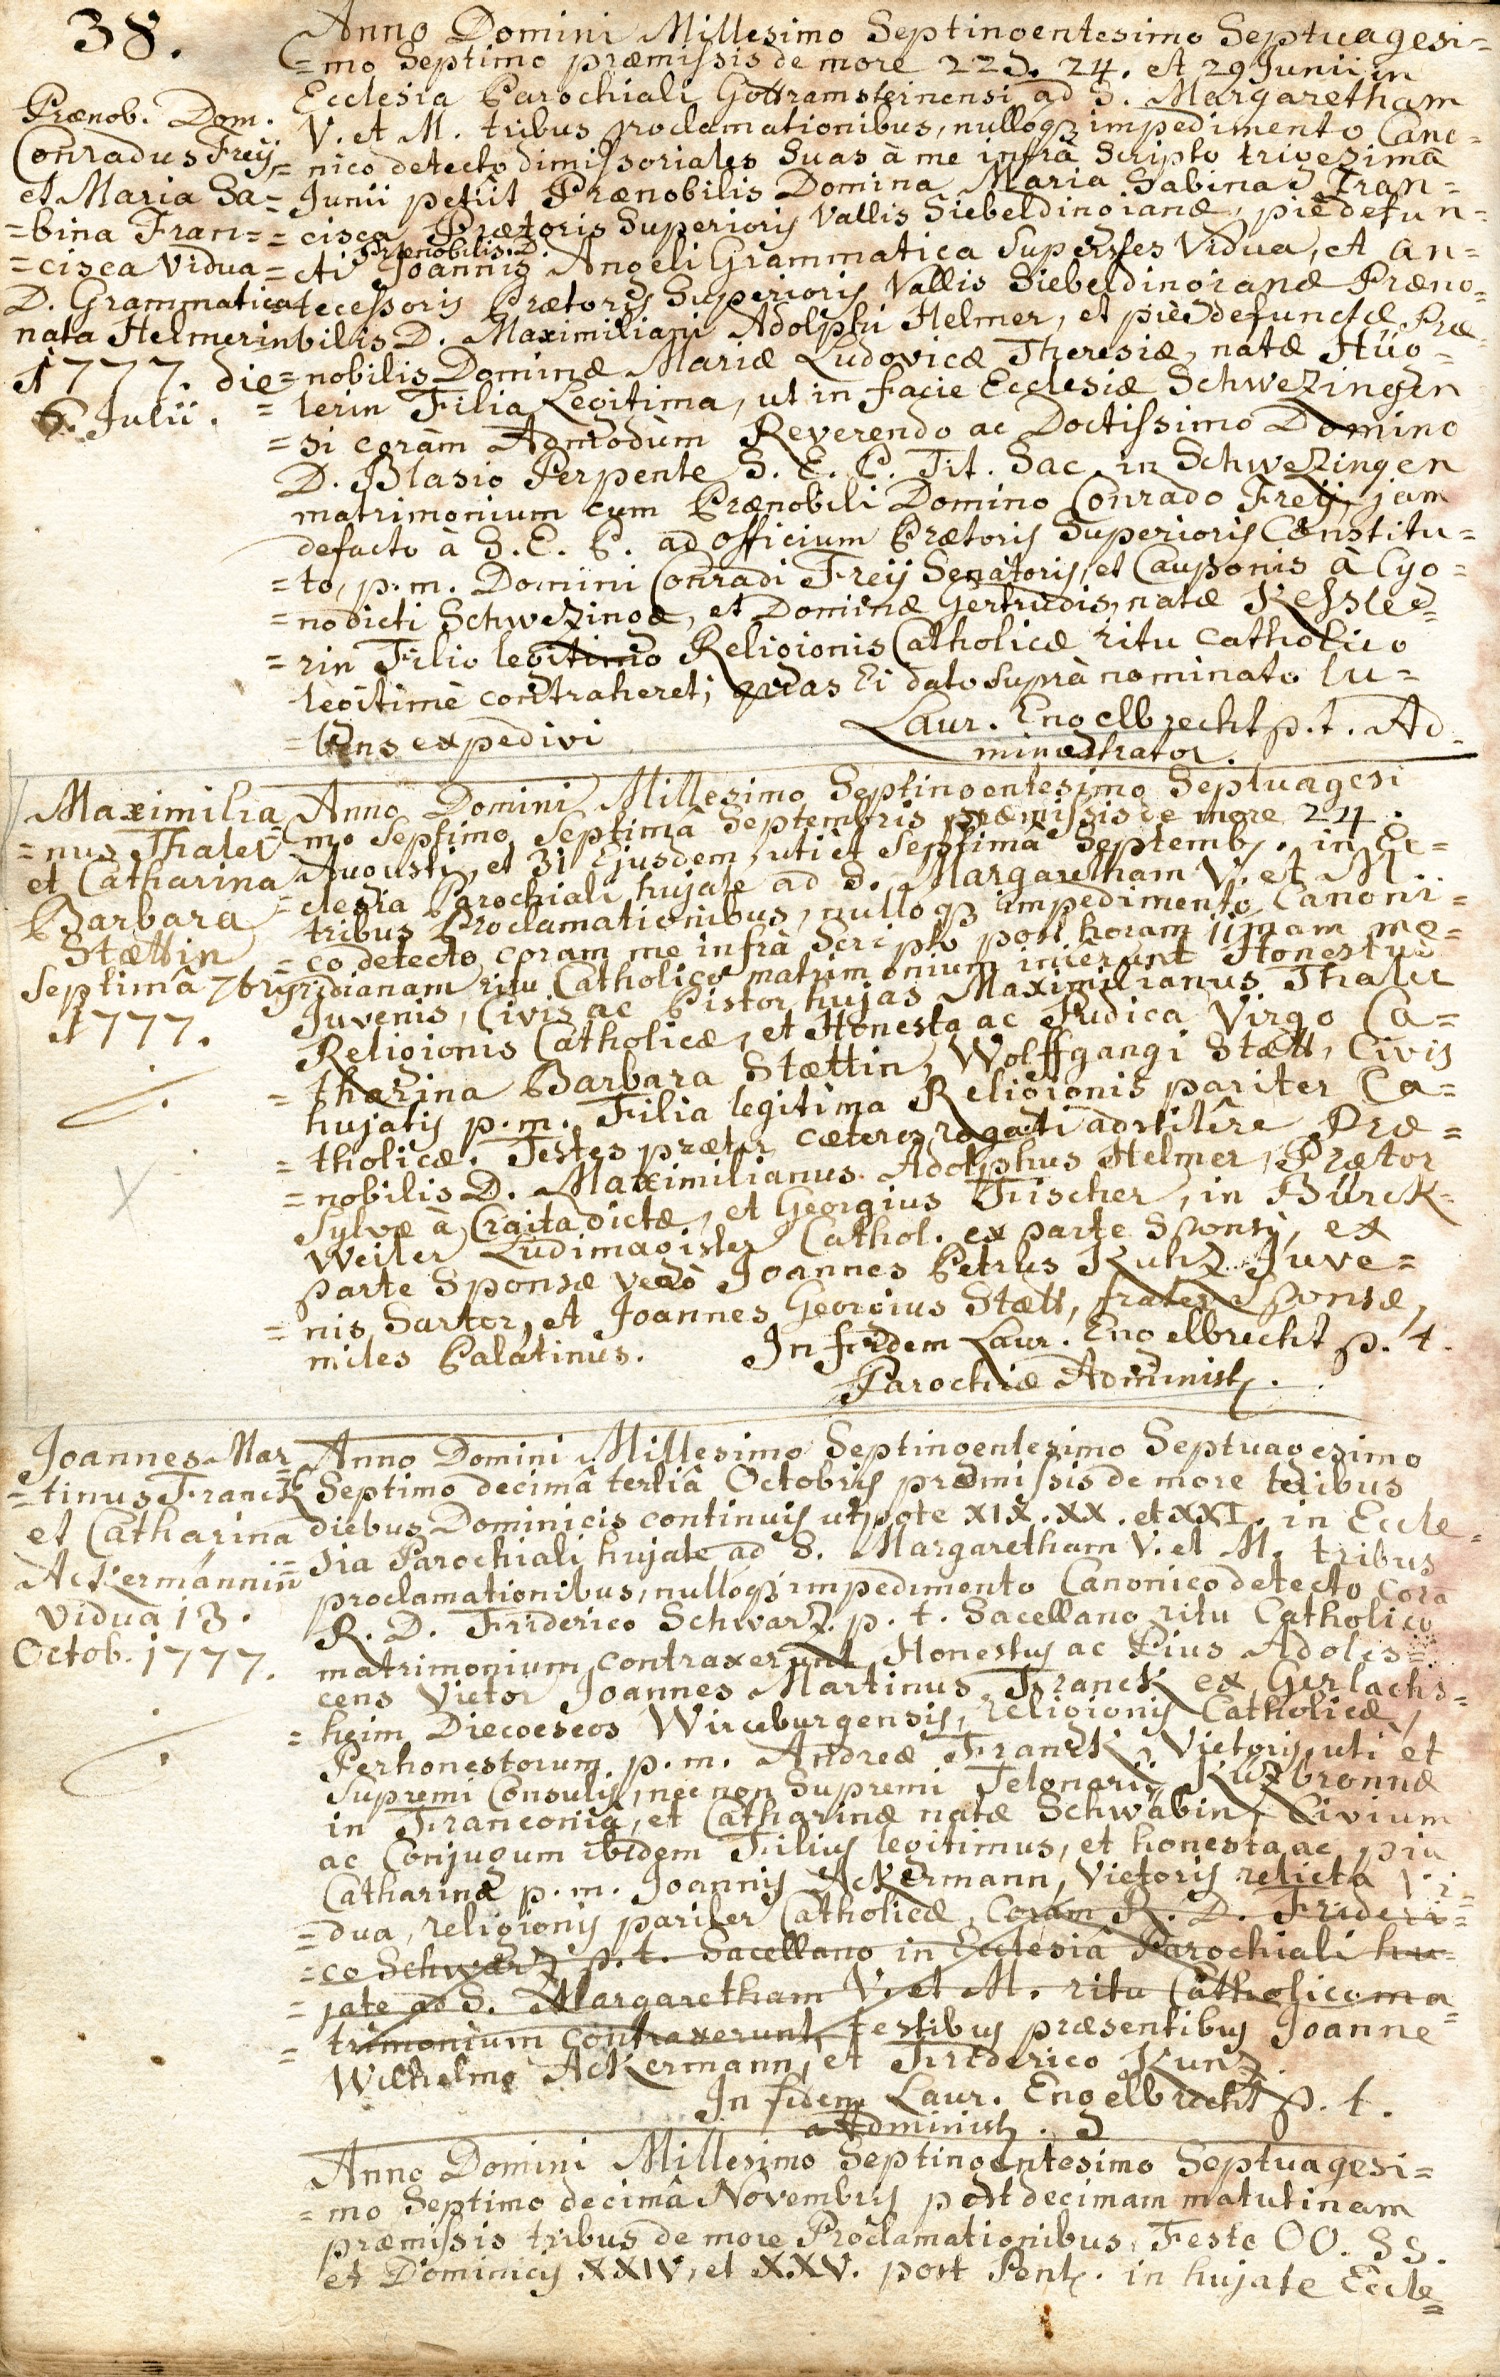 38.
Anno Domini Millesimo Septingentesimo Septuagesi=
=mo Septimo præmissis de more 22d. 24. et 29 Junii in
Ecclesia Parochiali Gottramsteinensi ad S. Margaretham
V. et M. tribus proclamationibus, nulloq3 impedimento Cano=
=nico detecto dimissoriales Suas à me infrà Scripto trigesimâ
Junii petiit Prænobilis Domina Maria Sabina Fran=
=cisca Prætoris Superioris Vallis Siebeldingianæ, piè defun=
=cti Prænobilis D. Joannis Angeli Grammatica Superstes Vidua, et an=
=tecessoris Prætoris Superioris Vallis Siebeldingianæ Præno=
bilis D. Maximiliani Adolphi Helmer, et piè defunctæ Præ=
=nobilis Dominæ Mariæ Ludovicæ Theresiæ, natæ Hüg=
=lerin Filia Legitima, ut in facie Ecclesiæ Schwezingen
=si coràm Admodùm Reverendo ac Doctissimo Domino
D. Blasio Perpente S. E. P. Tit. Sac. in Schwezingen
matrimonium cum Prænobili Domino Conrado Freÿ, jam
defacto à S. E. P. ad officium Prætoris Superioris Constitu=
=to, p. m. Domini Conradi Freÿ Senatoris, et Cauponis à Cyg=
=no dicti Schwezingæ, et Dominæ Gertrudis, natæ Kessle=
=rin Filio legitimo Religionis Catholicæ ritu catholico
legitimè contraheret; quas Ei dato suprà nominato lu=
=bens expedivi Laur. Engelbrecht p. t. Ad=
ministrator.
Prænob. Dom.
Conradus Freÿ,
et Maria Sa=
=bina Fran=
=cisca Vidua
D. Grammatica
nata Helmerin
1777. die
6. Julii.
Anno Domini Millesimo Septingentesimo Septuagesi
mo Septimo, Septimâ Septembris præmissis de more 24.
Augusti, et 31 Ejusdem, uti et Septimâ Septemb. in Ec=
=clesia Parochiali hujate ad S. Margaretham V. et M.
tribus Proclamationibus, nulloq3 impedimento Canoni=
=co detecto coram me infrà Scripto post horam 11mam me=
ridianam ritu Catholico matrimonium inierunt Honestus
Juvenis, Civis ac Pistor hujas Maximilianus Thaler
Religionis Catholicæ, et Honesta ac Pudica Virgo Ca=
=tharina Barbara Stættin, Wolffgangi Stætt, Civis
hujatis p. m. Filia legitima Religionis pariter Ca=
=tholicæ. Testes præter cæteros rogati adstitêre Præ=
=nobilis D. Maximilianus Adolphus Helmer, Prætor
Sylvæ à Craita dictæ, et Georgius Fischer, in Bürck=
weiler Ludimagister Cathol. ex parte Sponsi, ex
parte Sponsæ verò Joannes Petrus Kunz Juve=
=nis Sartor, et Joannes Georgius Stætt, frater Sponsæ,
miles Palatinus. In fidem Laur. Engelbrecht p. t.
Parochiæ Administ.
Maximilia
=nus Thaler
et Catharina
Barbara
Stættin
Septimâ 7bris
1777.
Anno Domini Millesimo Septingentesimo Septuagesimo
Septimo decimâ tertiâ Octobris præmissis de more tribus
diebus Dominicis continuis utpote XIX. XX. et XXI. in Eccle=
sia Parochiali hujate ad S. Margaretham V. et M. tribus
proclamationibus, nulloq3 impedimento Canonico detecto Cora
R. D. Friderico Schwarz p. t. Sacellano ritu Catholico
matrimonium contraxerunt Honestus ac Pius Adoles=
cens Vietor Joannes Martinus Franck ex Gerlachs=
=heim Diecoeseos Wirceburgensis, religionis Catholicæ,
Perhonestorum p. m. Andreæ Franck, Vietoris, uti et
Supremi Consulis, nec non Supremi Telonarii Kuzbronnæ
in Franconia, et Catharinæ natæ Schwäbin, Civium
ac Conjugum ibidem Filius legitimus, et honesta ac pia
Catharina p. m. Joannis Ackermann, Vietoris relicta Vi=
=dua, religionis pariter Catholicæ, Coràm R. D. Frideri=
=co Schwarz p. t. Sacellano in Ecclesia Parochiali hu=
=jate ad S. Margaretham V. et M. ritu Catholico ma
=trimonium contraxerunt, testibus præsentibus Joanne
Wilhelmo Ackermann, et Friderico Kunz.
In fidem Laur. Engelbrecht p. t.
administ.
Joannes Mar
=tinus Franck
et Catharina
Ackermännin
Vidua 13.
Octob. 1777.
Anno Domini Millesimo Septingentesimo Septuagesi=
=mo Septimo decimâ Novembris post decimam matutinam
præmissis tribus de more Proclamationibus, Festo OO. SS.
et Dominicis XXIV, et XXV. post Pent. in hujate Eccle=